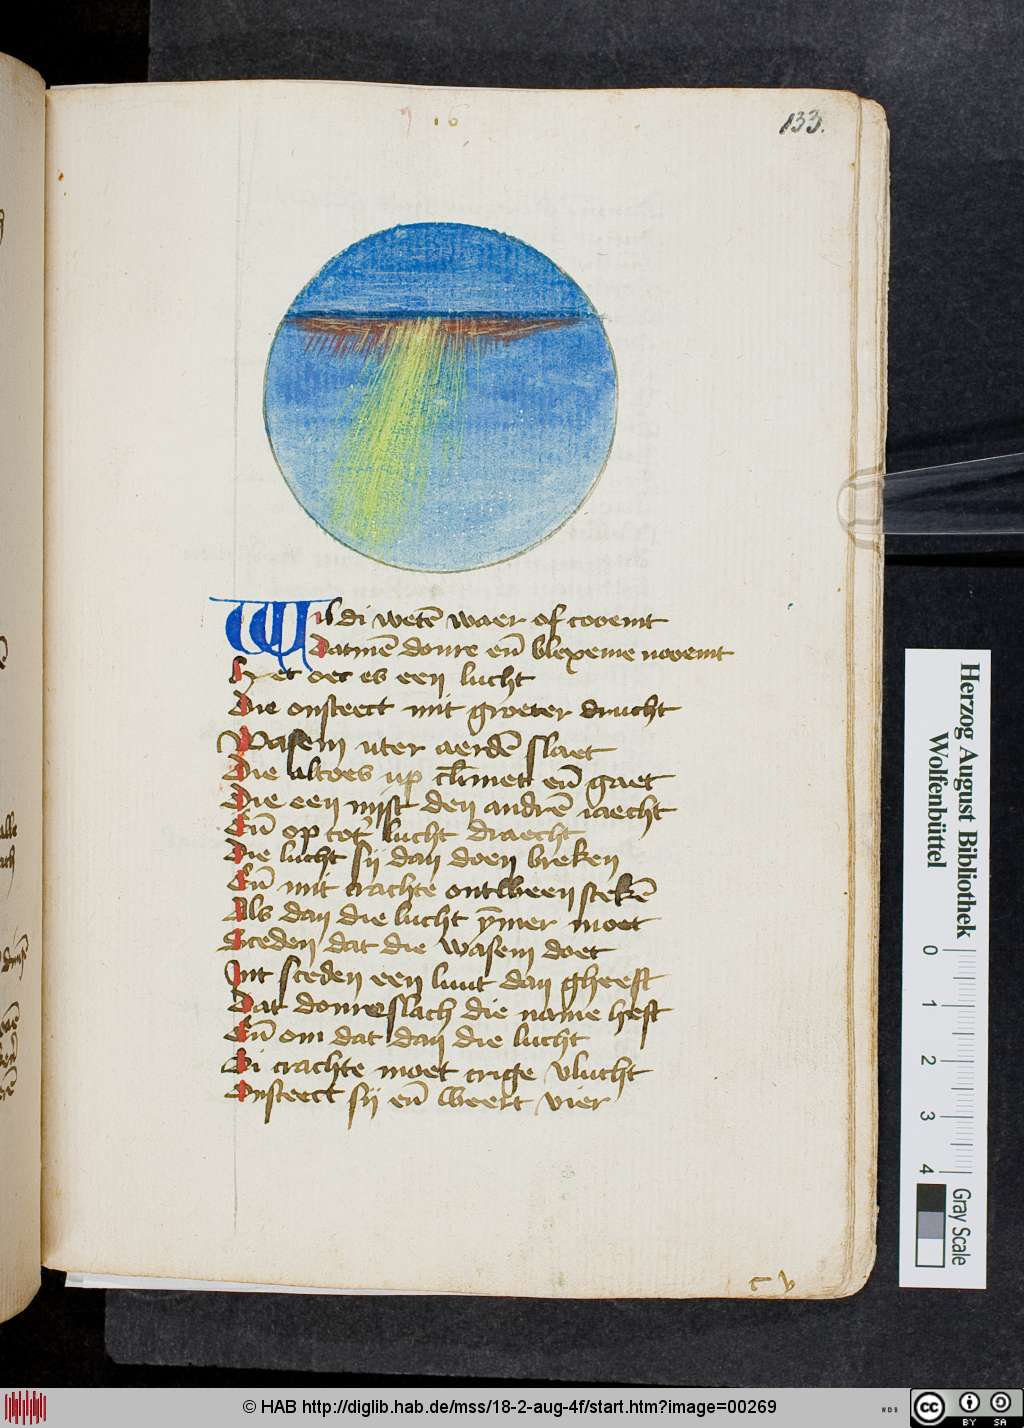 16
133.
Wil di wetē waer of coemt
Datmē donre eñ blexeme noemt
Het oec es een lucht
Die onsteect mit groeter drucht
Wasem uter aerdē slaet
Die altoes up climet eñ gaet
Die een mist den andrē iaecht
Eñ op tot lucht draecht
Die lucht sij dan doen breken
Eñ mit crachte ontween stekē
Als dan die lucht ymer moet
Sceden dat die wasem doet
Int sceden een luut dan gheeft
Dat donreslach die name heft
Eñ om dat dan die lucht
Bi crachte moet crige vlucht
Onsteect sij eñ weert vier
c v
Herzog August Bibliothek
Wolfenbüttel
0 1 2 3 4
Gray Scale
© HAB http://diglib.hab.de/mss/18-2-aug-4f/start.htm?image=00269
cc BY SA